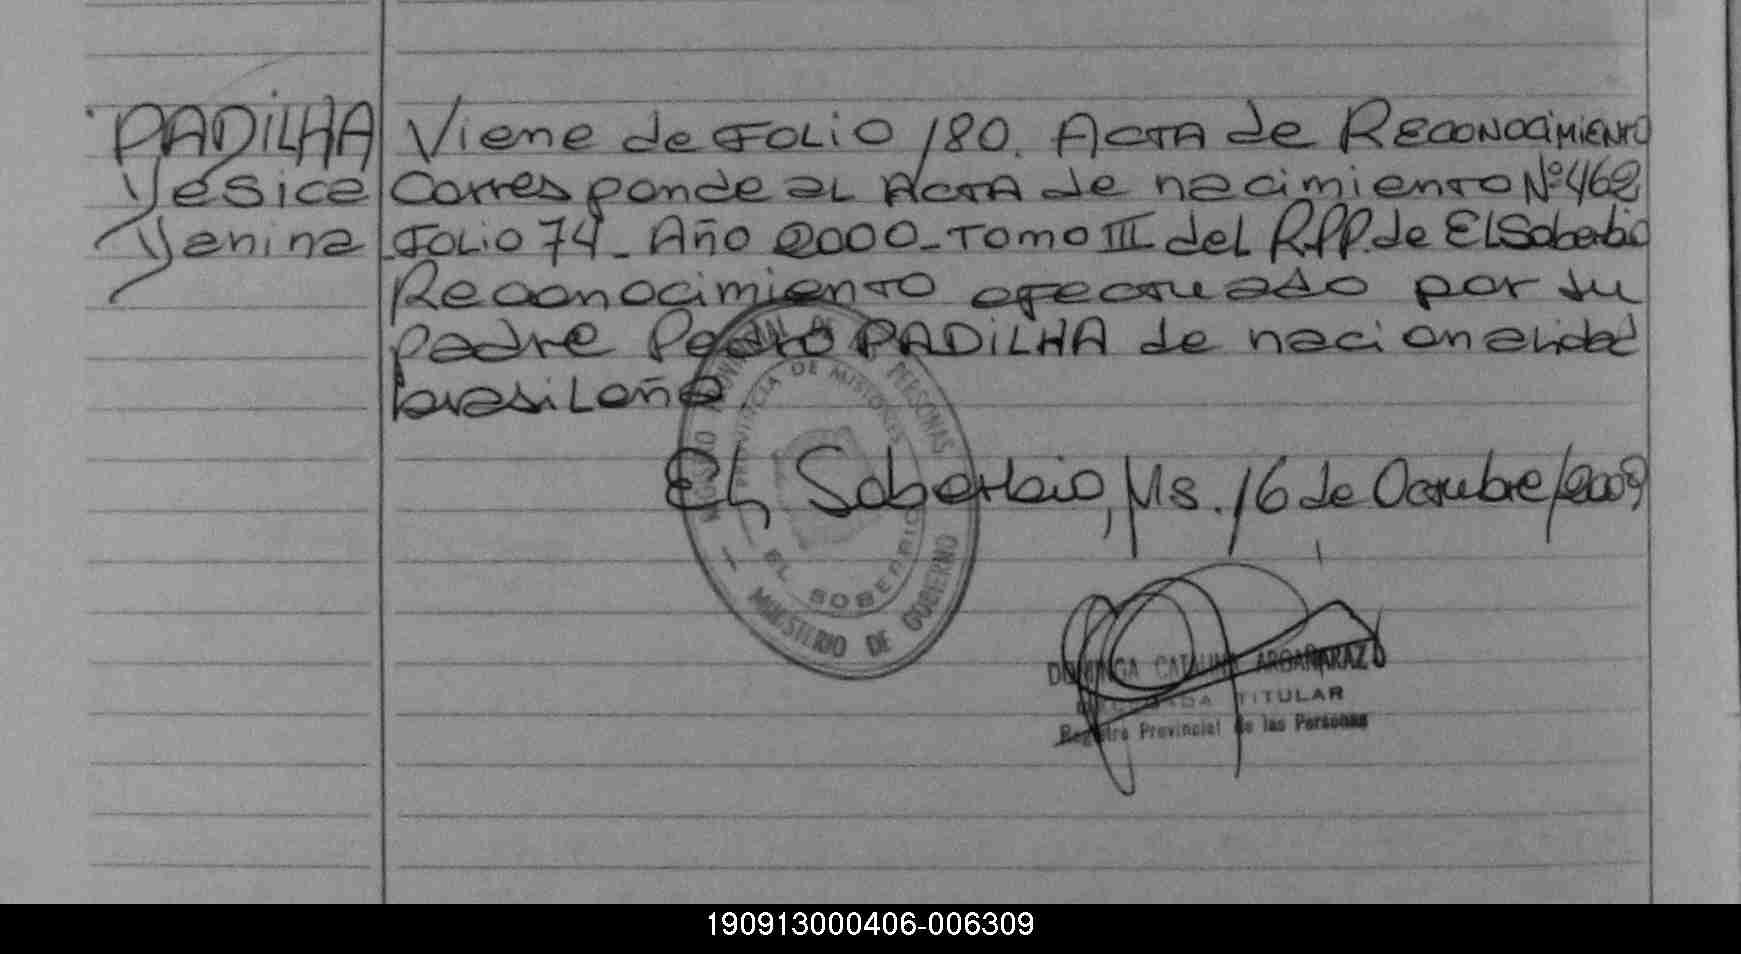 PADILHA Viene de FOLIO 180. ACTA de RECONOCIMIENTO
Yésica Corresponde al ACTA de nacimiento Nº 462
Yanina FOLIO 74 - Año 2000 - TOMO III del R.P.P. de El Soberbio
Reconocimiento efectuado por su
padre Pedro PADILHA de nacionalidad
brasileña.
El Soberbio, Ms. 16 de Octubre/2009
PROVINCIAL DE PERSONAS
PROVINCIA DE MISIONES
EL SOBERBIO
MINISTERIO DE GOBIERNO
DOMINGA CATALINA ARGAÑARAZ
TITULAR
Registro Provincial de las Personas
190913000406-006309